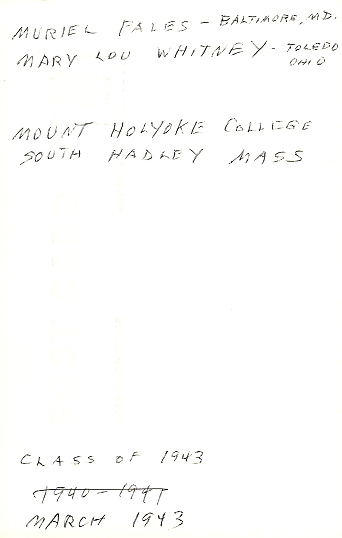 MURIEL FALES - BALTIMORE, MD.
MARY LOU WHITNEY - TOLEDO OHIO
MOUNT HOLYOKE COLLEGE
SOUTH HADLEY MASS
CLASS OF 1943
1940-1941
MARCH 1943